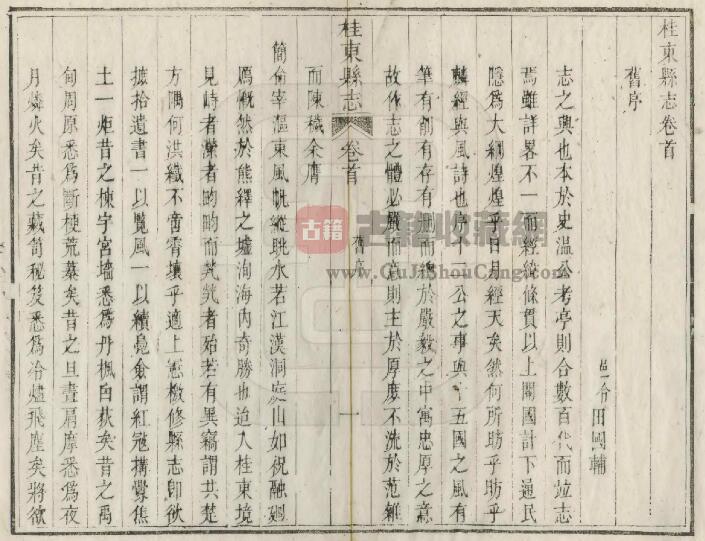 桂東縣志卷首
舊序
邑令田國輔
志之興也本於史溫公考亭則合數百代而竝志
焉雖詳畧不一而經緯條貫以上關國計下通民
隱爲大綱煌煌乎日月經天矣然何所昉乎昉乎
麟經與風詩也序十二公之事與十五國之風有
筆有削有存有刪而總於嚴毅之中寓忠厚之意
故作志之體必嚴而意則主於厚庶不流於范雎
而陳穢余膺
桂東縣志
卷首
舊序
一
簡命宰漚東風帆縱眺水若江漢洞庭山如祝融廻
鴈慨然於熊繹之墟洵海內奇勝也迨入桂東境
見峙者濼者畇畇而芃芃者殆若有異竊謂共楚
方隅何洪纖不啻霄壤乎適上憲檄修縣志卽欲
摭拾遺書一以覽風一以續堯僉謂紅寇搆釁焦
土一炬昔之棟宇宮墻悉爲丹楓白荻矣昔之禹
甸周原悉爲斷梗荒蓁矣昔之旦晝肩摩悉爲夜
月燐火矣昔之藏笥秘笈悉爲冷燼飛塵矣將欲
古籍
古籍收藏網
www.GuJiShouCang.com